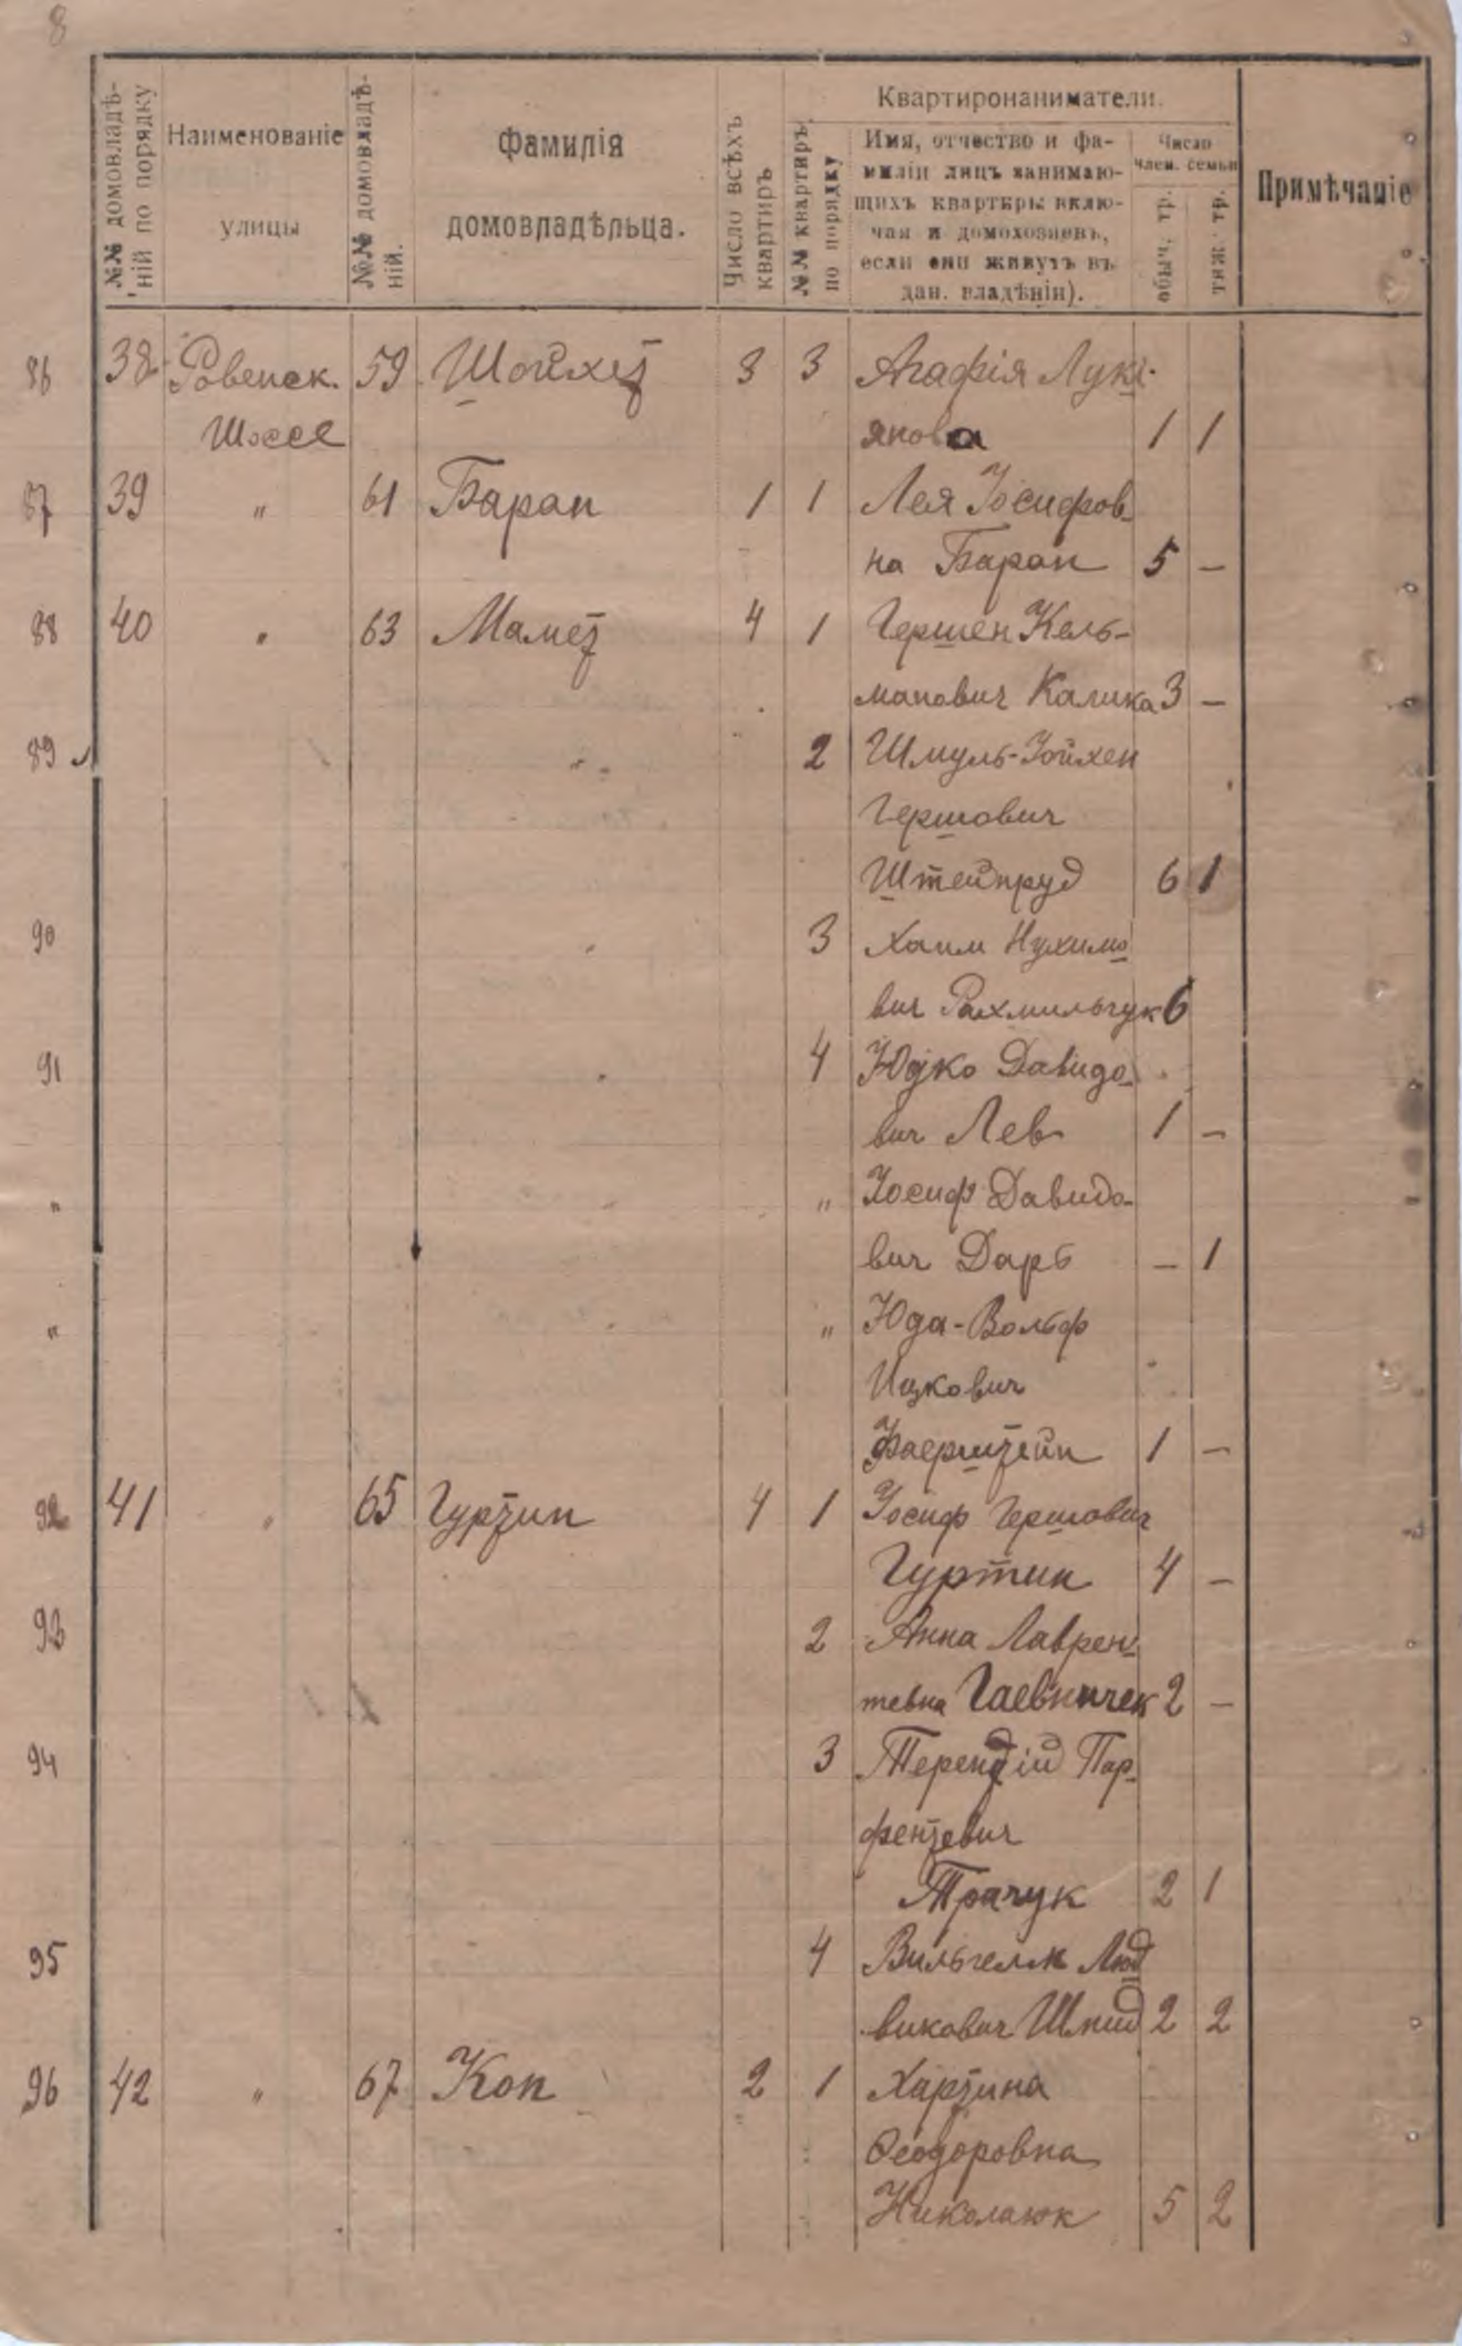 8
№№ домовладѣ-
ній по порядку
Наименованіе
улицы
№№ домовладѣ-
ній.
Фамилія
домовладѣльца.
Число всѣхъ
квартиръ
№№ квартиръ
по порядку
Квартиронаниматели.
Имя, отчество и фа-
миліи лицъ занимаю-
щихъ квартиры вклю-
чая и домохозяевъ,
если они живутъ въ
дан. владѣніи).
Число
член. семьи
обыч. тр.
тяж. тр.
Примѣчаніе
86 38 Ровенск. 59 Шойхет 3 3 Агафія Луки-
Шоссе янова 1 1
87 39 " 61 Баран 1 1 Лея Іосифов-
на Баран 5 —
88 40 " 63 Мамет 4 1 Гершен Кель-
манович Калика 3 —
89 2 Шмуль-Іойхен
Гершович
Штейнруд 6 1
90 3 Хаим Нухимо
вич Рахмильчук 6
91 4 Юдко Давидо-
вич Лев 1 —
" " Іосиф Давидо-
вич Даръ — 1
" " Юда-Вольф
Ицкович
Фаерштейн 1 —
92 41 " 65 Гуртин 4 1 Іосиф Гершович
Гуртин 4 —
93 2 Анна Лаврен-
тевна Гаевничек 2 —
94 3 Терентій Пар-
фентевич
Трачук 2 1
95 4 Вильгельм Люд
викович Шмид 2 2
96 42 " 67 Коп 2 1 Хартина
Ѳеодоровна
Николаюк 5 2